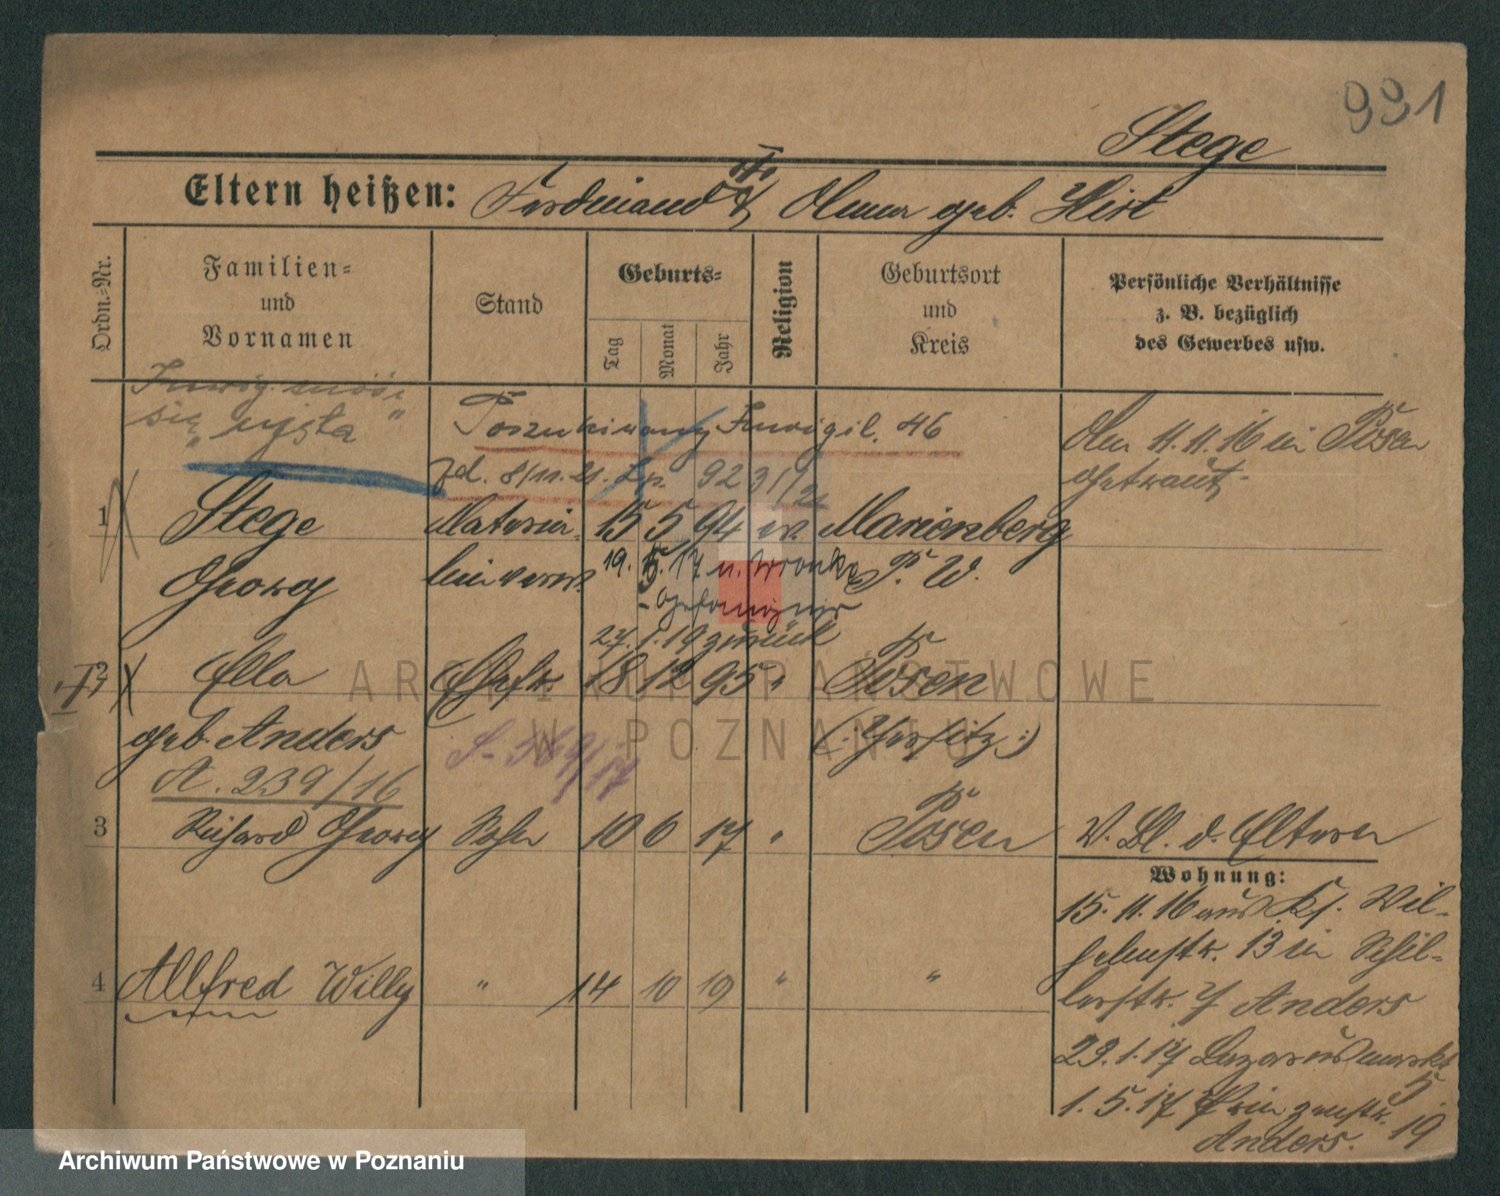 991
Stege
Eltern heißen: Ferdinand & Anna geb. Hirt
Ordn.=Nr.
Familien=
und
Vornamen
Stand
Geburts=
Tag
Monat
Jahr
Religion
Geburtsort
und
Kreis
Persönliche Verhältnisse
z. B. bezüglich
des Gewerbes usw.
Poszukiwany Inwigil. 46
8/11. 21. 9231/21
Am 11.11.16 in Posen
getraut.
1 Stege 15 5 94 ev. Marienberg
Georg W.
19. 5. 17 n. Wronke
Gefängnis
27. 1. 19 zurück
Ella Ehefr. 18 12 95 " Posen
geb. Anders (: Jersitz :)
A. 239/16
3 Richard Georg Sohn 10 6 17 " Posen V. Bl. d. Eltern
Wohnung:
15. 11. 16 aus Ks. Wil-
helmstr. 13 in Schil-
lerstr. 7 Anders
4 Allfred Willy " 14 10 19 " "
23. 1. 17 Lazarusmarkt
5
1. 5. 17 Prinzenstr. 19
Anders.
ARCHIWUM PAŃSTWOWE
W POZNANIU
Archiwum Państwowe w Poznaniu